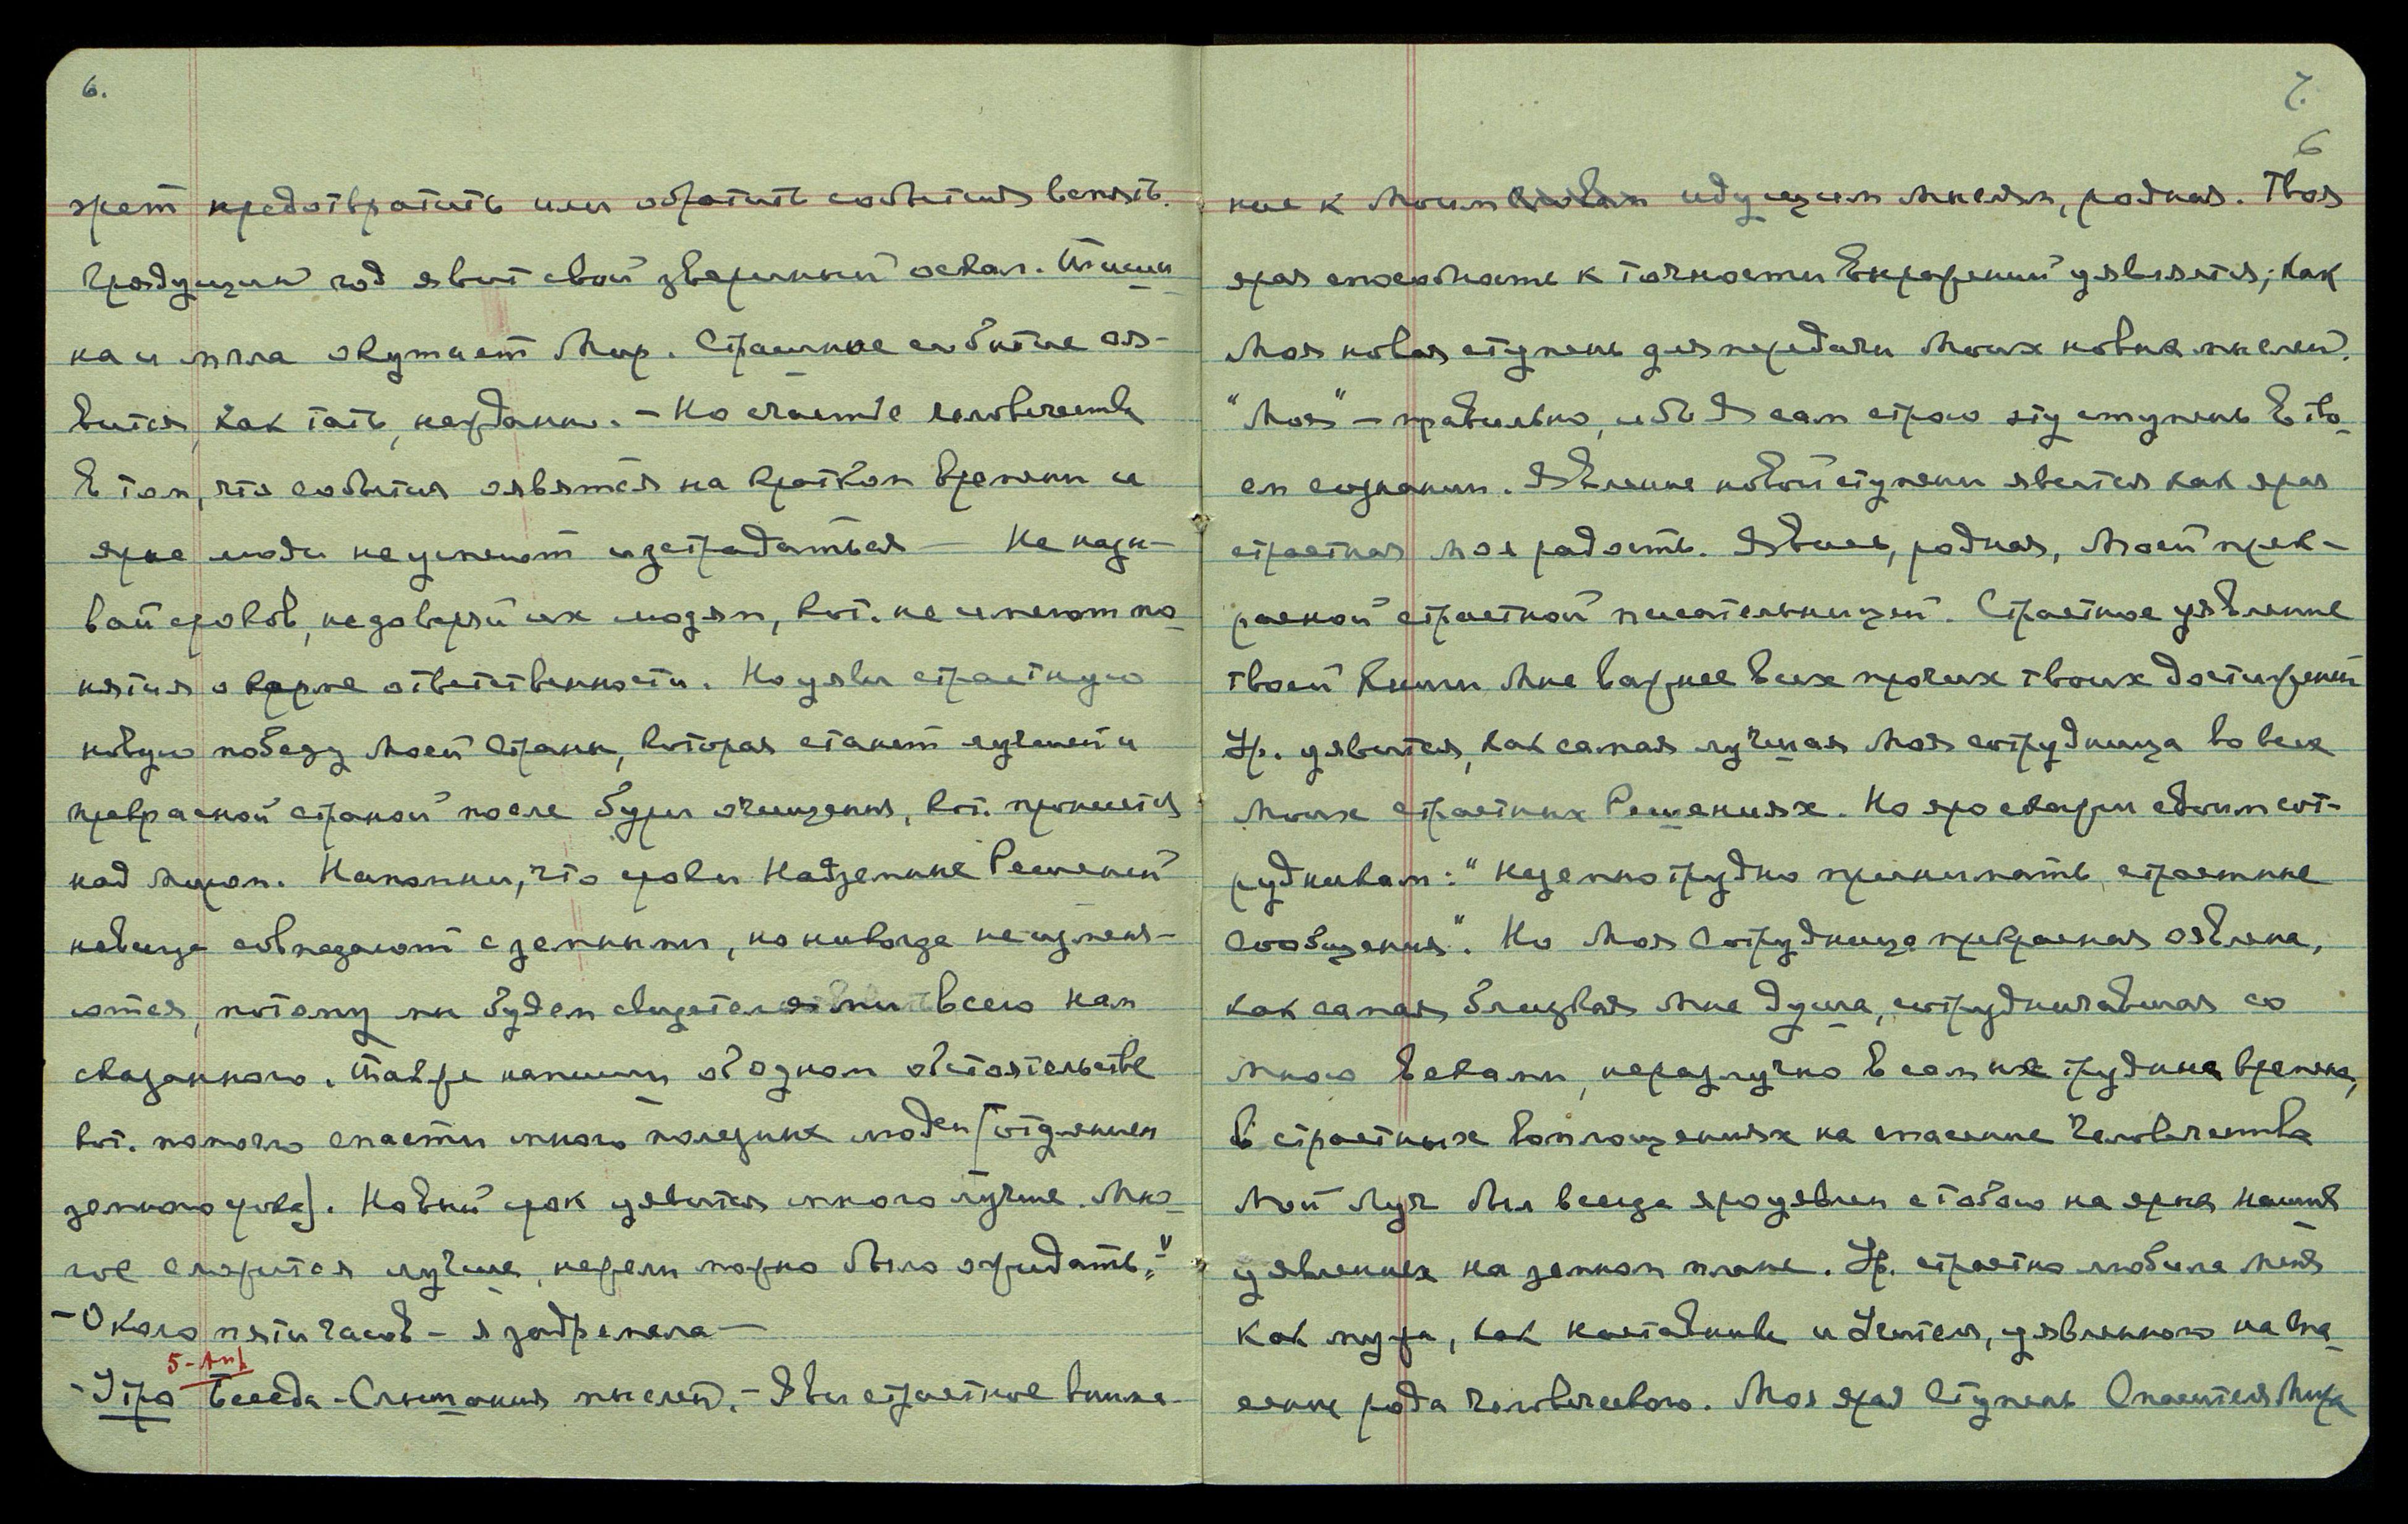 6.
жет предотвратить или обратить события вспять.
Грядущий год явит свой звериный оскал. Тиши
на и мгла окутает Мир. Страшное событие оя-
вится, как тать, нежданно. – Но счастье человечества
в том, что события оявятся на кратком времени и
ярые люди не успеют исстрадаться — Не назы-
вай сроков, не доверяй их людям, кот. не имеют по
нятия о карме ответственности. Но уяви страстную
новую победу Моей Страны, которая станет лучшей и
прекрасной страной после бури очищения, кот. пронесется
над миром. Напомни, что сроки Надземные Решений
не всегда совпадают с земными, но никогда не изменя-
ются, потому мы будем свидетелями всего нам
сказанного. Также напиши об одном обстоятельстве
кот. помогло спасти много полезных людей (отдаление
земного срока). Новый срок уявится много лучше. Мно
гое сложится лучше, нежели можно было ожидать."
– Около пяти часов – я задремала —
5-Апр
– Утро Беседа – Слышания мыслей. – Яви страстное внима-
7.
6
ние к Моим идущим мыслям, родная. Твоя
ярая способность к точности выражений уявляется, как
Моя новая ступень для передачи Моих новых мыслей.
"Моя" – правильно, ибо Я сам строю эту ступень в тво
ем сознании. Явление новой ступени явится как ярая
страстная моя радость. Явись, родная, Моей прек-
расной страстной писательницей. Страстное уявление
твоей Книги Мне важнее всех прочих твоих достижений
Ур. уявится, как самая лучшая Моя сотрудница во всех
Моих страстных Решениях. Но яро скажи своим сот-
рудникам: "Неземно трудно принимать страстные
Сообщения". Но Моя Сотрудница прекрасная оявлена,
как самая близкая Мне душа, сотрудничавшая со
Мною веками, неразлучно в самые трудные времена,
в страстных воплощениях на спасение Человечества
Мой Луч был всегда яро уявлен с тобою на ярых наших
уявлениях на земном плане. Ур. страстно любила Меня
как мужа, как наставника и Учителя, уявленного на спа
сение рода человеческого. Моя ярая Ступень Спасителя Мира